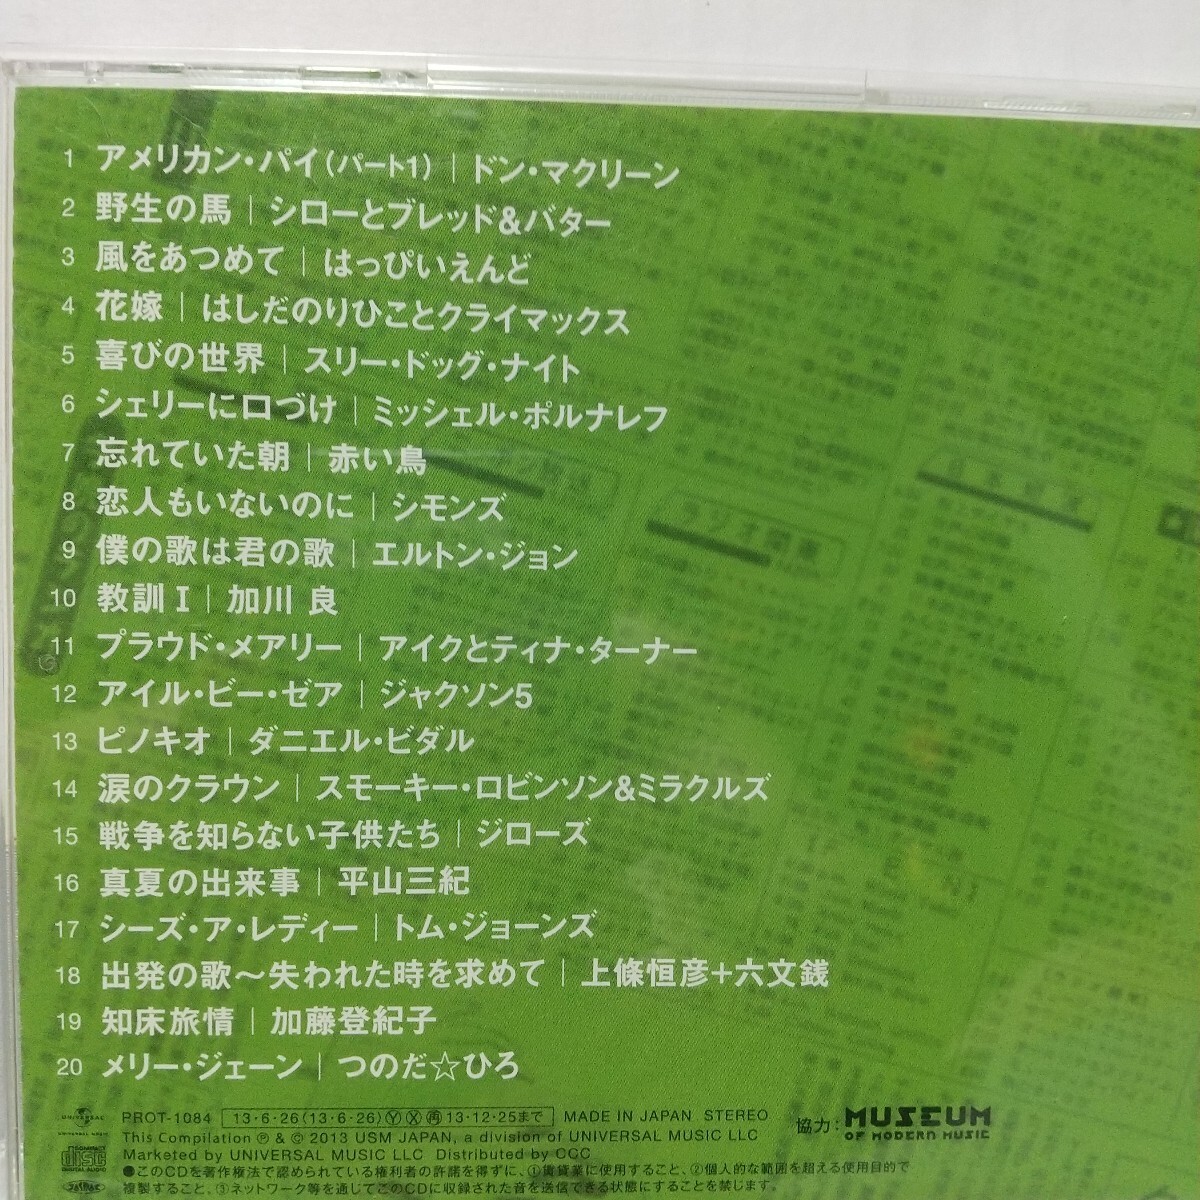 1 アメリカン・パイ(パート1)|ドン・マクリーン
2 野生の馬|シローとブレッド&バター
3 風をあつめて|はっぴいえんど
4 花嫁|はしだのりひことクライマックス
5 喜びの世界|スリー・ドッグ・ナイト
6 シェリーに口づけ|ミッシェル・ポルナレフ
7 忘れていた朝|赤い鳥
8 恋人もいないのに|シモンズ
9 僕の歌は君の歌|エルトン・ジョン
10 教訓Ⅰ|加川 良
11 プラウド・メアリー|アイクとティナ・ターナー
12 アイル・ビー・ゼア|ジャクソン5
13 ピノキオ|ダニエル・ビダル
14 涙のクラウン|スモーキー・ロビンソン&ミラクルズ
15 戦争を知らない子供たち|ジローズ
16 真夏の出来事|平山三紀
17 シーズ・ア・レディー|トム・ジョーンズ
18 出発の歌〜失われた時を求めて|上條恒彦+六文銭
19 知床旅情|加藤登紀子
20 メリー・ジェーン|つのだ☆ひろ
UNIVERSAL
PROT-1084 13・6・26(13・6・26)ⓎⓍ再13・12・25まで MADE IN JAPAN STEREO
This Compilation ℗ & © 2013 USM JAPAN, a division of UNIVERSAL MUSIC LLC
Marketed by UNIVERSAL MUSIC LLC Distributed by CCC
協力: MUSEUM
OF MODERN MUSIC
COMPACT disc DIGITAL AUDIO
●このCDを著作権法で認められている権利者の許諾を得ずに、①賃貸業に使用すること、②個人的な範囲を超える使用目的で
複製すること、③ネットワーク等を通じてこのCDに収録された音を送信できる状態にすることを禁じます。